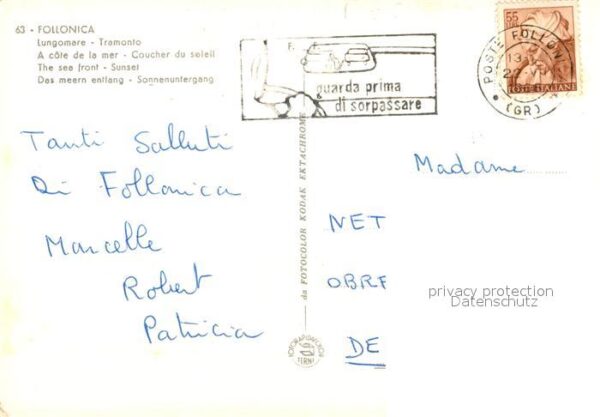 63 - FOLLONICA
Lungomare - Tramonto
A côte de la mer - Coucher du soleil
The sea front - Sunset
Das meern entlang - Sonnenuntergang
F.
guarda prima
di sorpassare
55
POSTE FOLLON
(GR)
POSTE ITALIANE
Tanti Salluti
Di Follonica
Marcelle
Robert
Patricia
da FOTOCOLOR KODAK EKTACHROME
TERNI
Madame
NET
OBRF
DE
privacy protection
Datenschutz